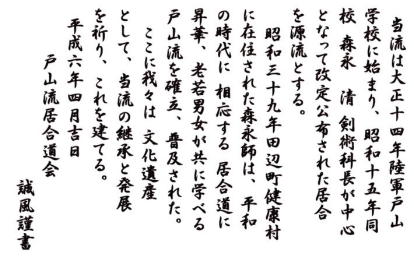 当流は大正十四年陸軍戸山
学校に始まり、昭和十五年同
校 森永 清 剣術科長が中心
となって改定公布された居合
を源流とする。
昭和三十九年田辺町健康村
に在住された森永師は、平和
の時代に 相応する 居合道に
昇華、老若男女が共に学べる
戸山流を確立、普及された。
ここに我々は 文化遺産
として、当流の継承と発展
を祈り、これを建てる。
平成六年四月吉日
戸山流居合道会
誠風謹書